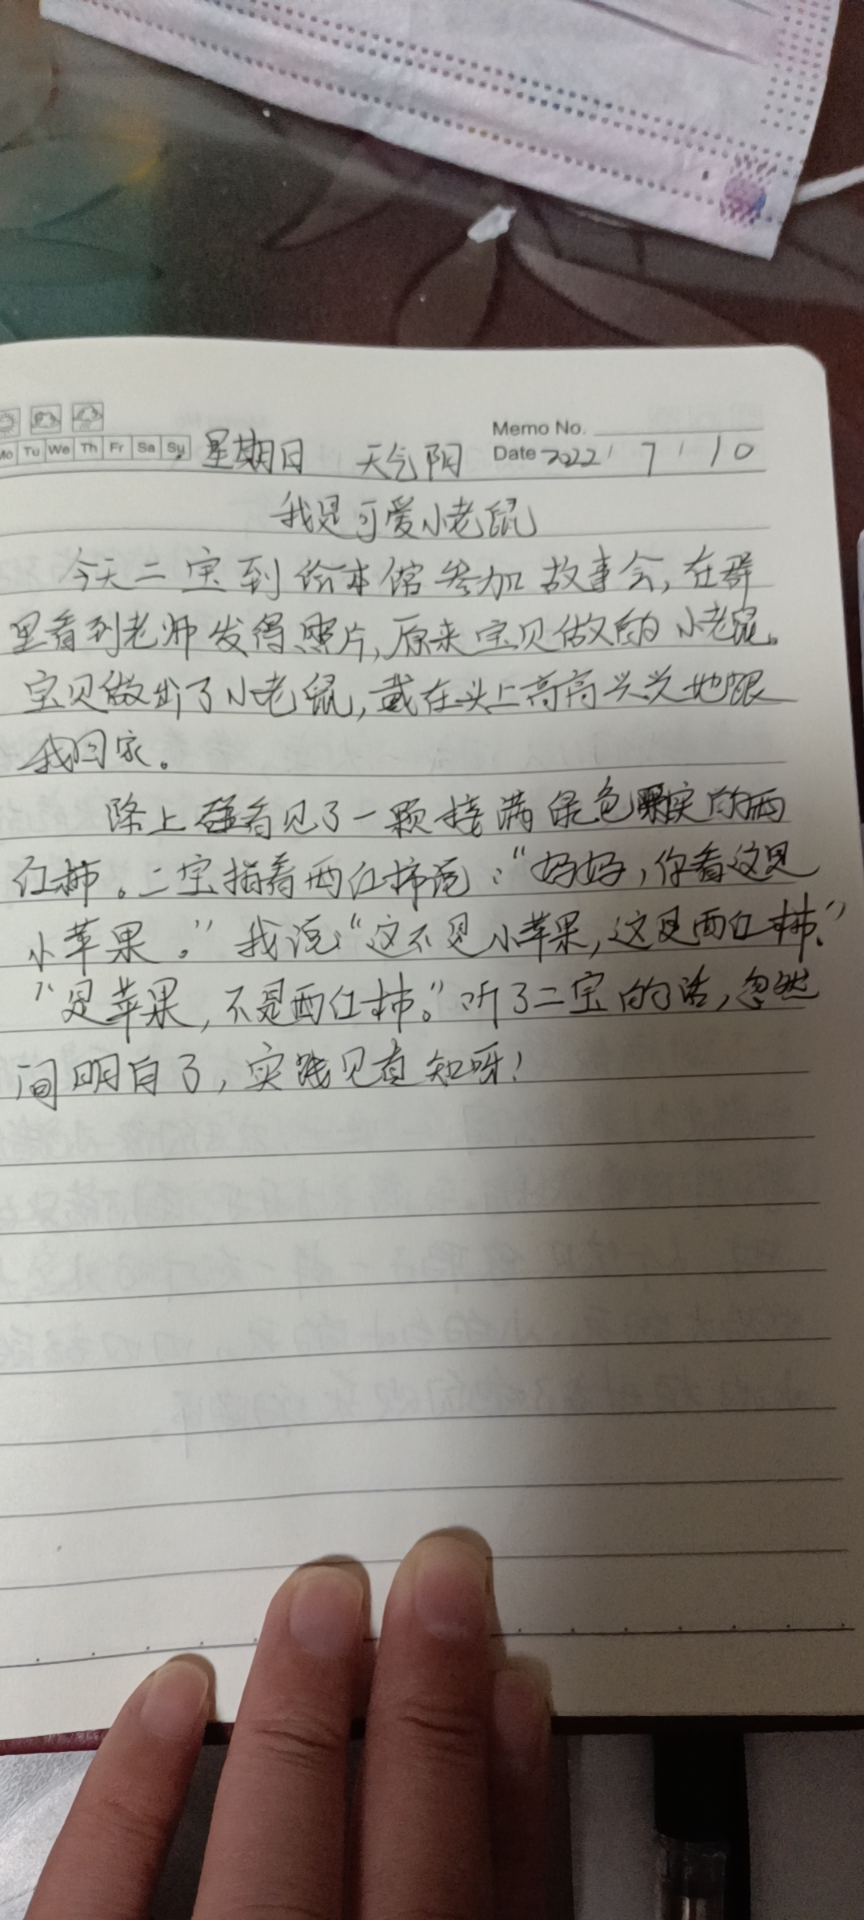 Memo No.
Mo Tu We Th Fr Sa Su 星期日 天气阴 Date 2022 7 10
我是可爱小老鼠
今天二宝到绘本馆参加故事会,在群
里看到老师发得照片,原来宝贝做的小老鼠。
宝贝做出了小老鼠,戴在头上高高兴兴地跟
我回家。
晚上看见了一颗接满绿色果实的西
红柿。二宝指着西红柿说:“妈妈,你看这是
小苹果。”我说“这不是小苹果,这是西红柿.”
“是苹果,不是西红柿。”听了二宝的话,忽然
间明白了,实践见真知呀!